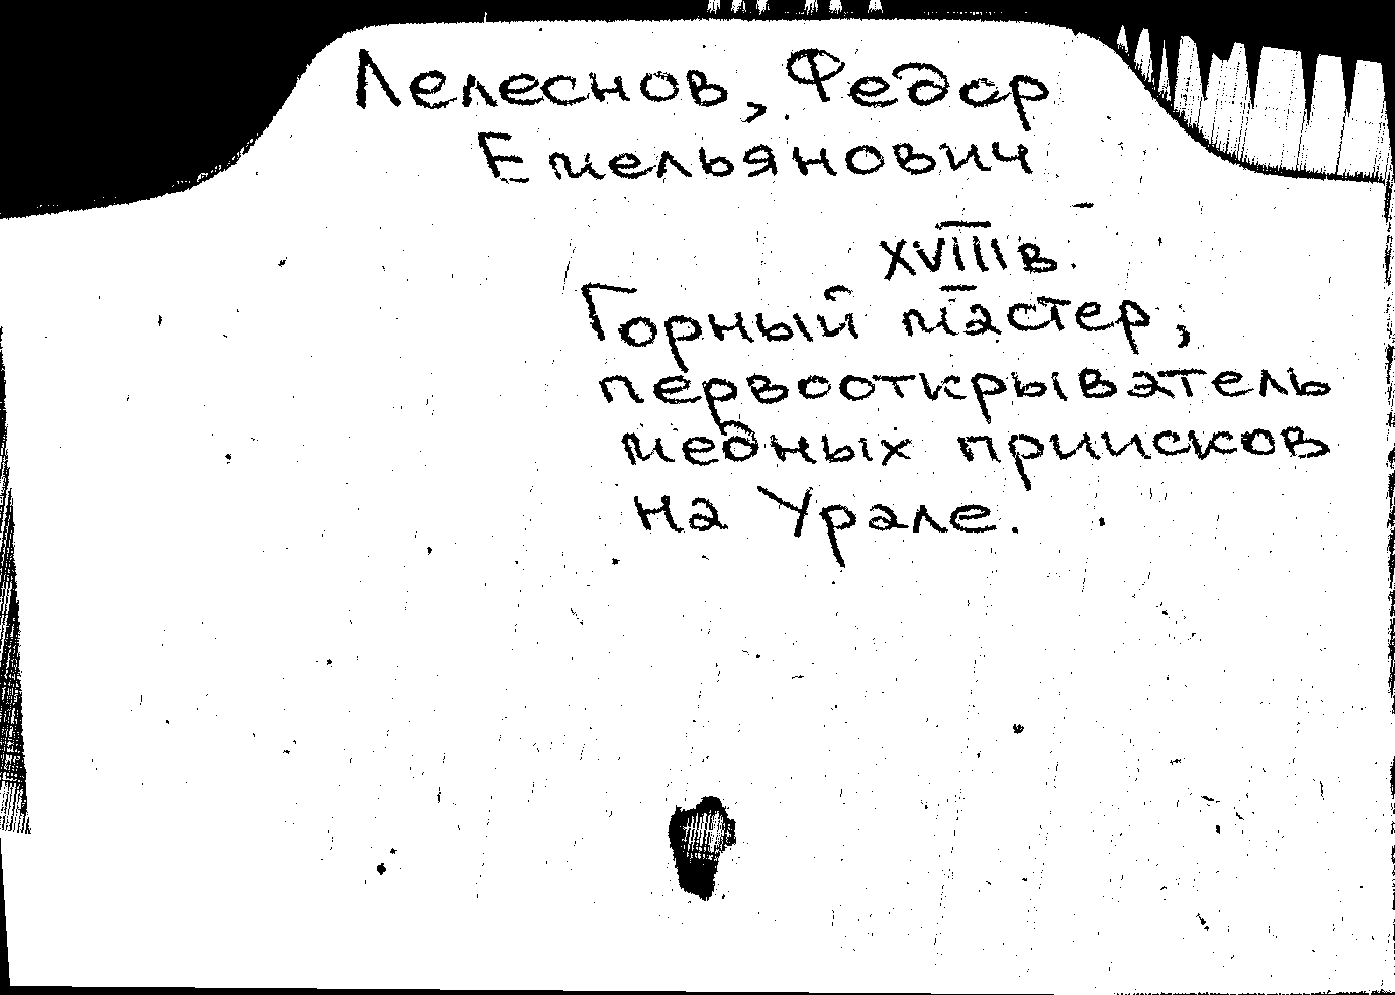 Лелеснов, Федор
Емельянович
XVIII в.
Горный мастер,
первооткрыватель
медных приисков
на Урале.